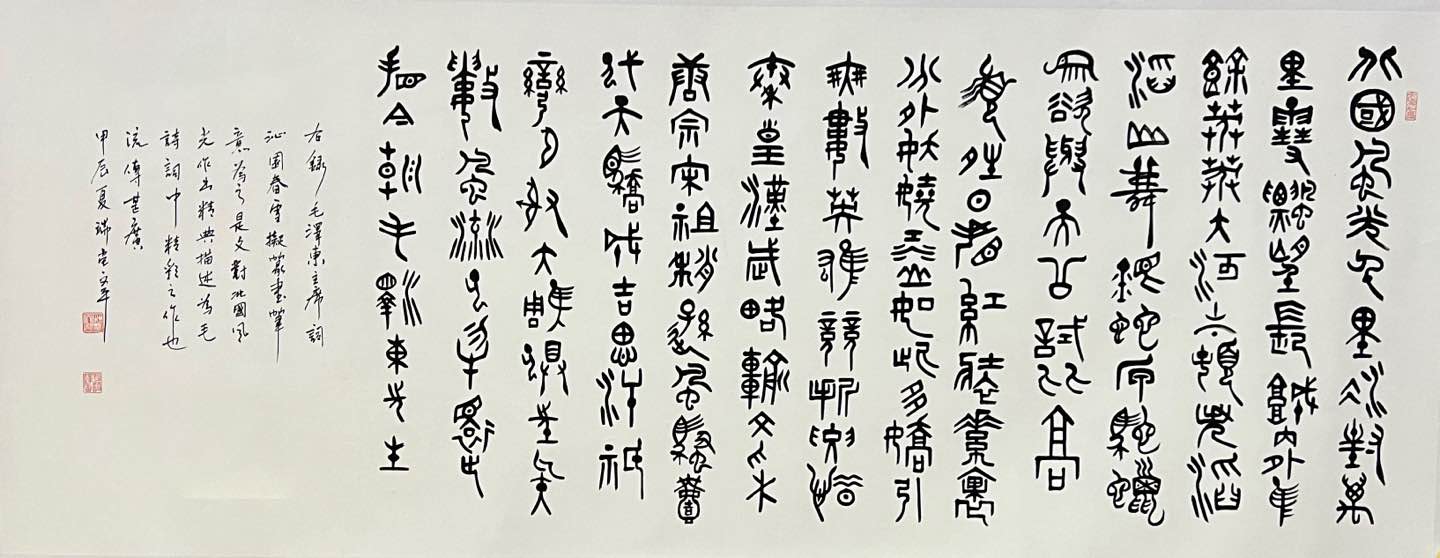 北國風光千里冰封萬
里雪飄望長城內外惟
餘莽莽大河上下頓失滔
滔山舞銀蛇原馳蠟
象欲與天公試比高
須晴日看紅裝素裹
分外妖嬈江山如此多嬌引
無數英雄競折腰惜
秦皇漢武略輸文采
唐宗宋祖稍遜風騷壹
代天驕成吉思汗祇
彎弓射大雕俱往矣
數風流人物還
看今朝毛澤東先生
右錄毛澤東主席詞
沁園春雪擬篆書筆
意為之是文對北國風
光作出精典描述為毛
詩詞中精彩之作也
流傳甚廣
甲辰夏瑞堂